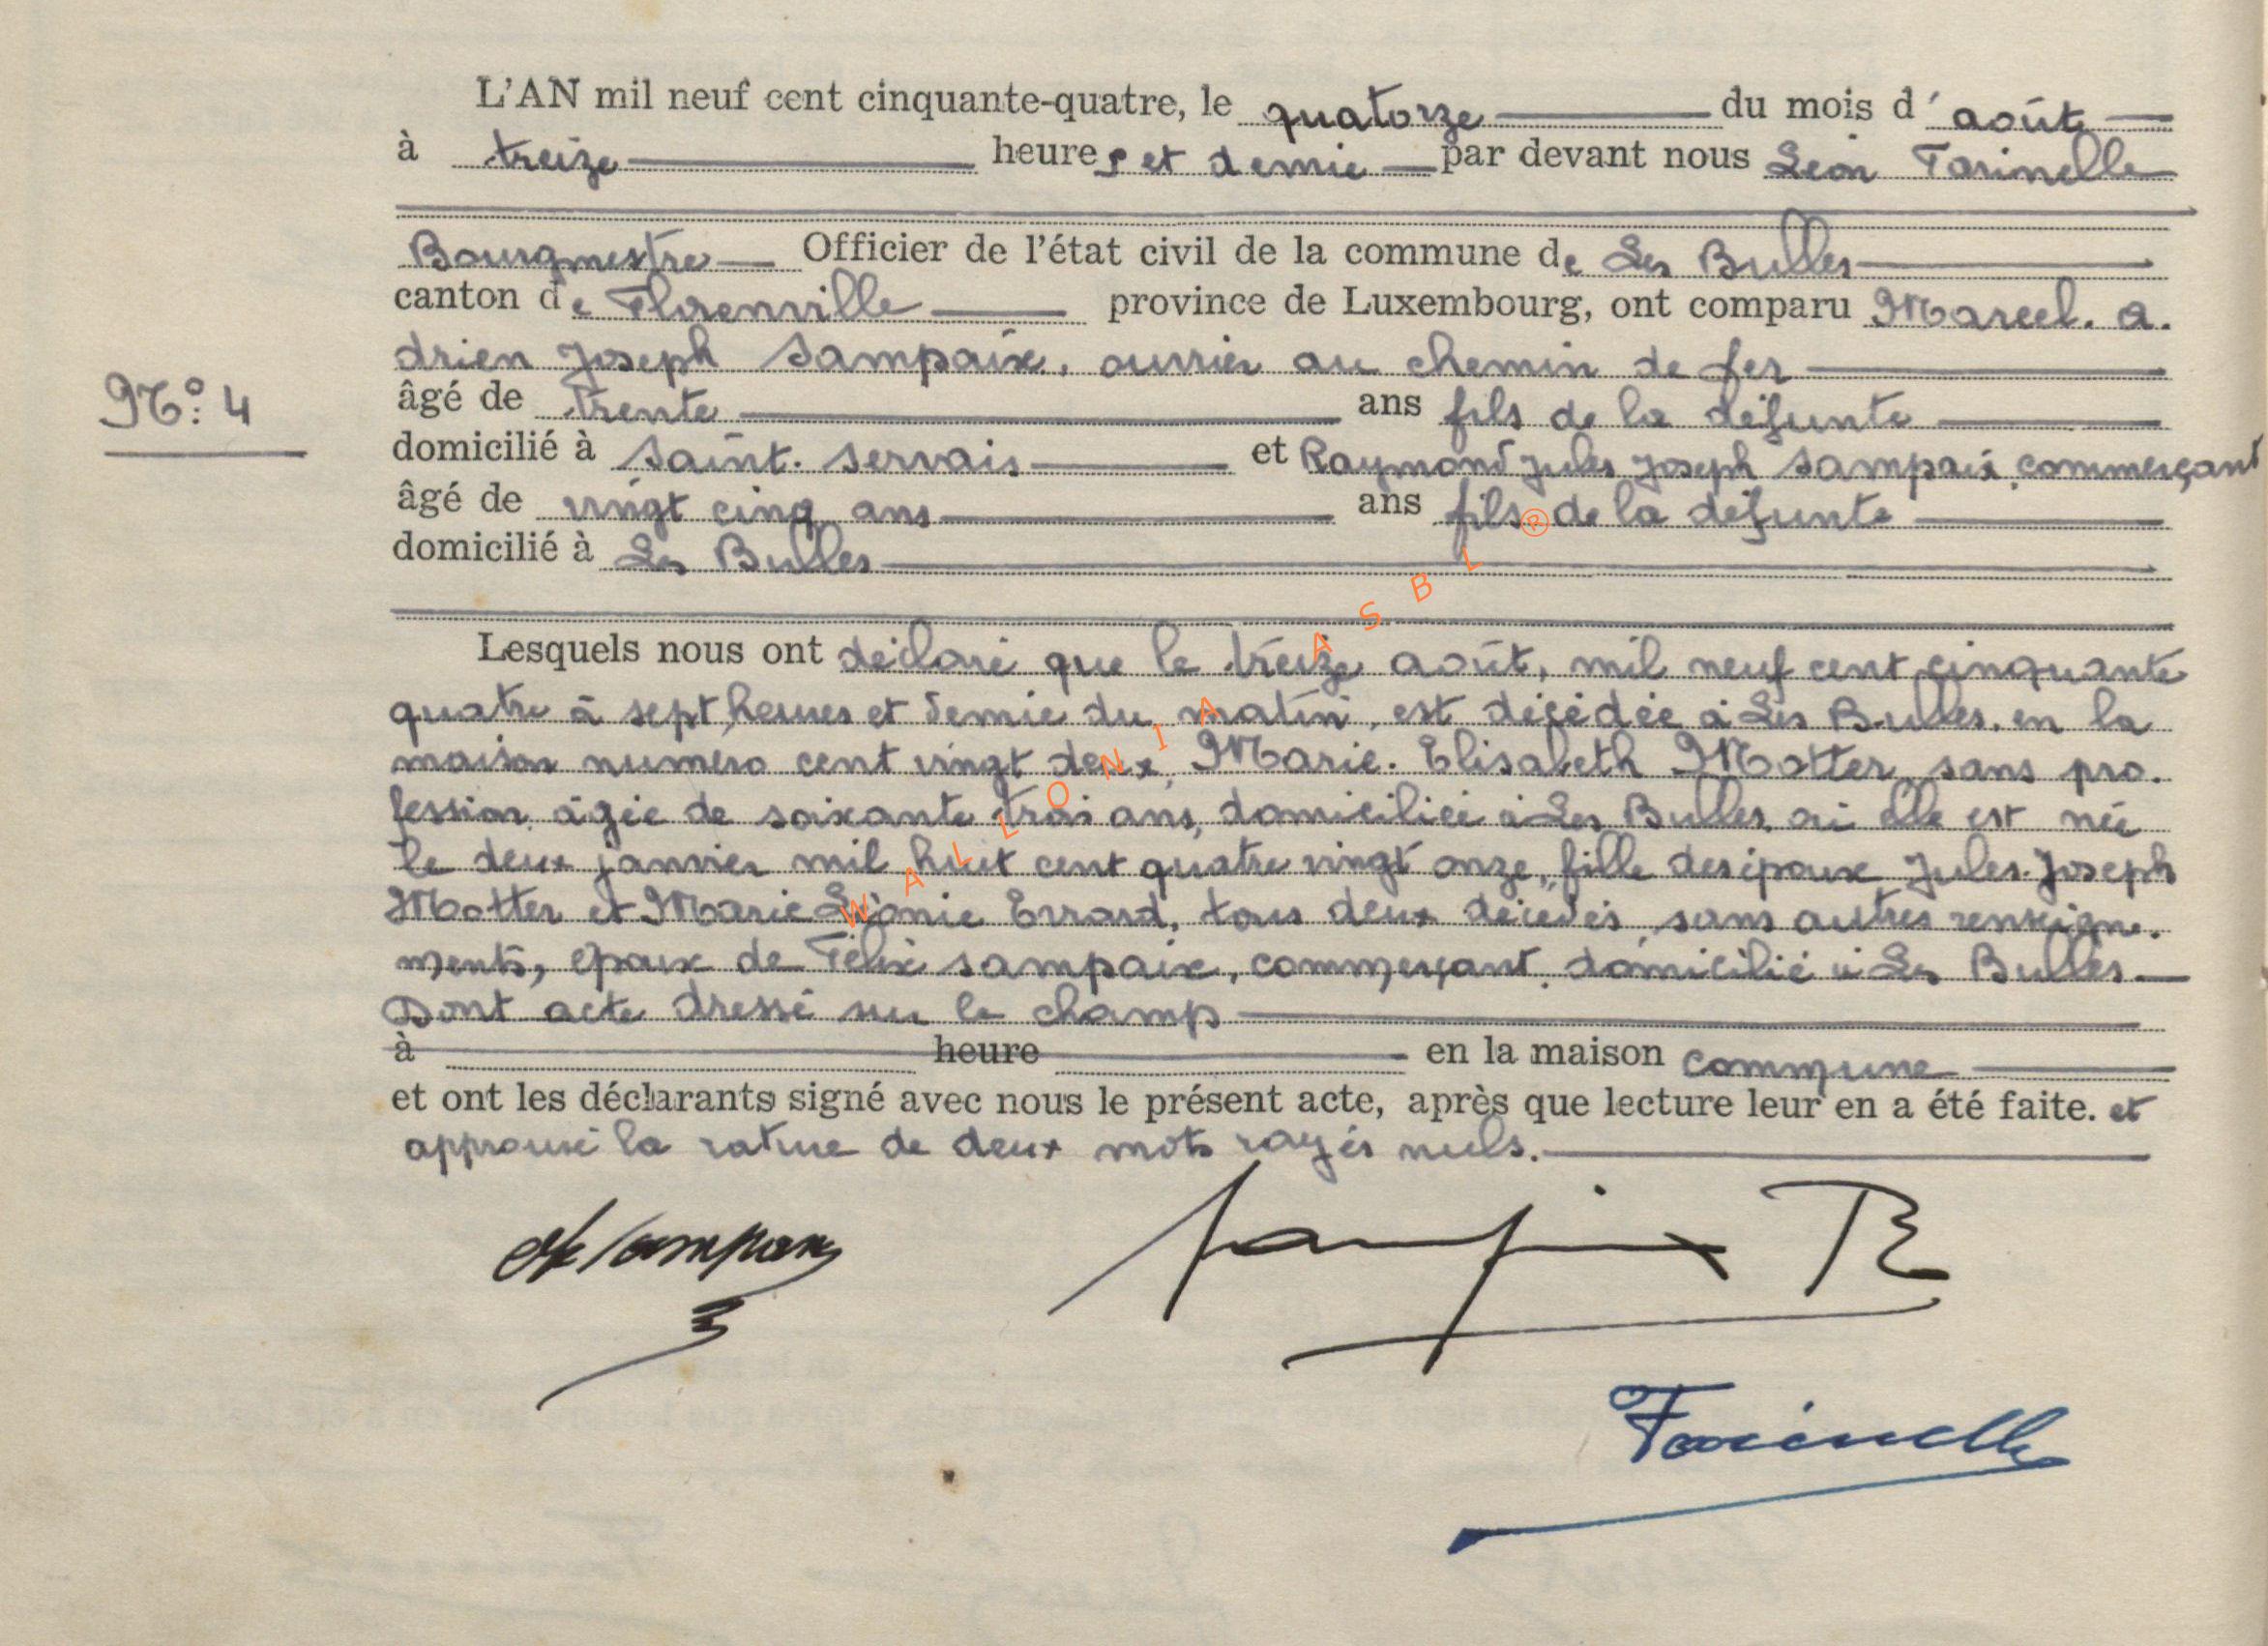 L'AN mil neuf cent cinquante-quatre, le quatorze du mois d'août
à treize heures et demie par devant nous Léon Farinelle
Bourgmestre Officier de l'état civil de la commune de Les Bulles
canton de Florenville province de Luxembourg, ont comparu Marcel. A.
drien Joseph Sampaix, ouvrier au chemin de fer
N°: 4
âgé de trente ans fils de la défunte
domicilié à Saint-Servais et Raymond Jules Joseph Sampaix commerçant
âgé de vingt cinq ans ans fils de la défunte
domicilié à Les Bulles
Lesquels nous ont déclaré que le treize août, mil neuf cent cinquante
quatre à sept heures et demie du matin, est décédée à Les Bulles, en la
maison numéro cent vingt deux, Marie-Elisabeth Motter, sans pro-
fession, âgée de soixante trois ans, domiciliée à Les Bulles, où elle est née
le deux janvier mil huit cent quatre vingt onze, fille des époux Jules-Joseph
Motter et Marie Léonie Errard, tous deux décédés, sans autres renseigne-
ments, épouse de Félix Sampaix, commerçant, domicilié à Les Bulles.
Dont acte dressé sur le champ
à heure en la maison commune
et ont les déclarants signé avec nous le présent acte, après que lecture leur en a été faite. et
approuvé la rature de deux mots rayés nuls.
Sampaix R
Farinelle
WALLONIA ASBL ®